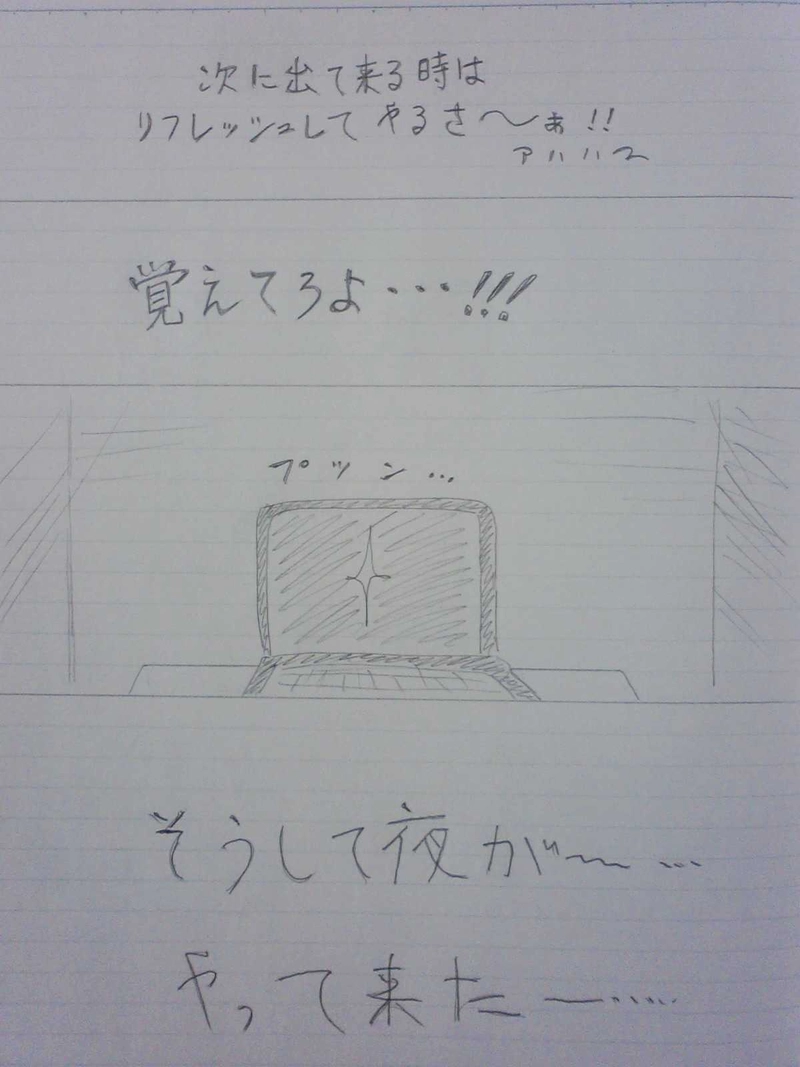 次に出て来る時は
リフレッシュしてやるさ～ぁ!!
アハハハ
覚えてろよ・・・!!!
プツン…
そうして夜が～…
やって来たー……